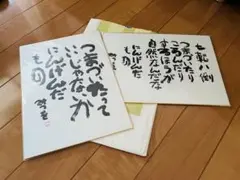 七転八倒
つまづいたり
ころんだり
するほうが
自然なんだな
にんげんだ
もの
つまづいたって
いいじゃないか
にんげんだ
もの
みつを